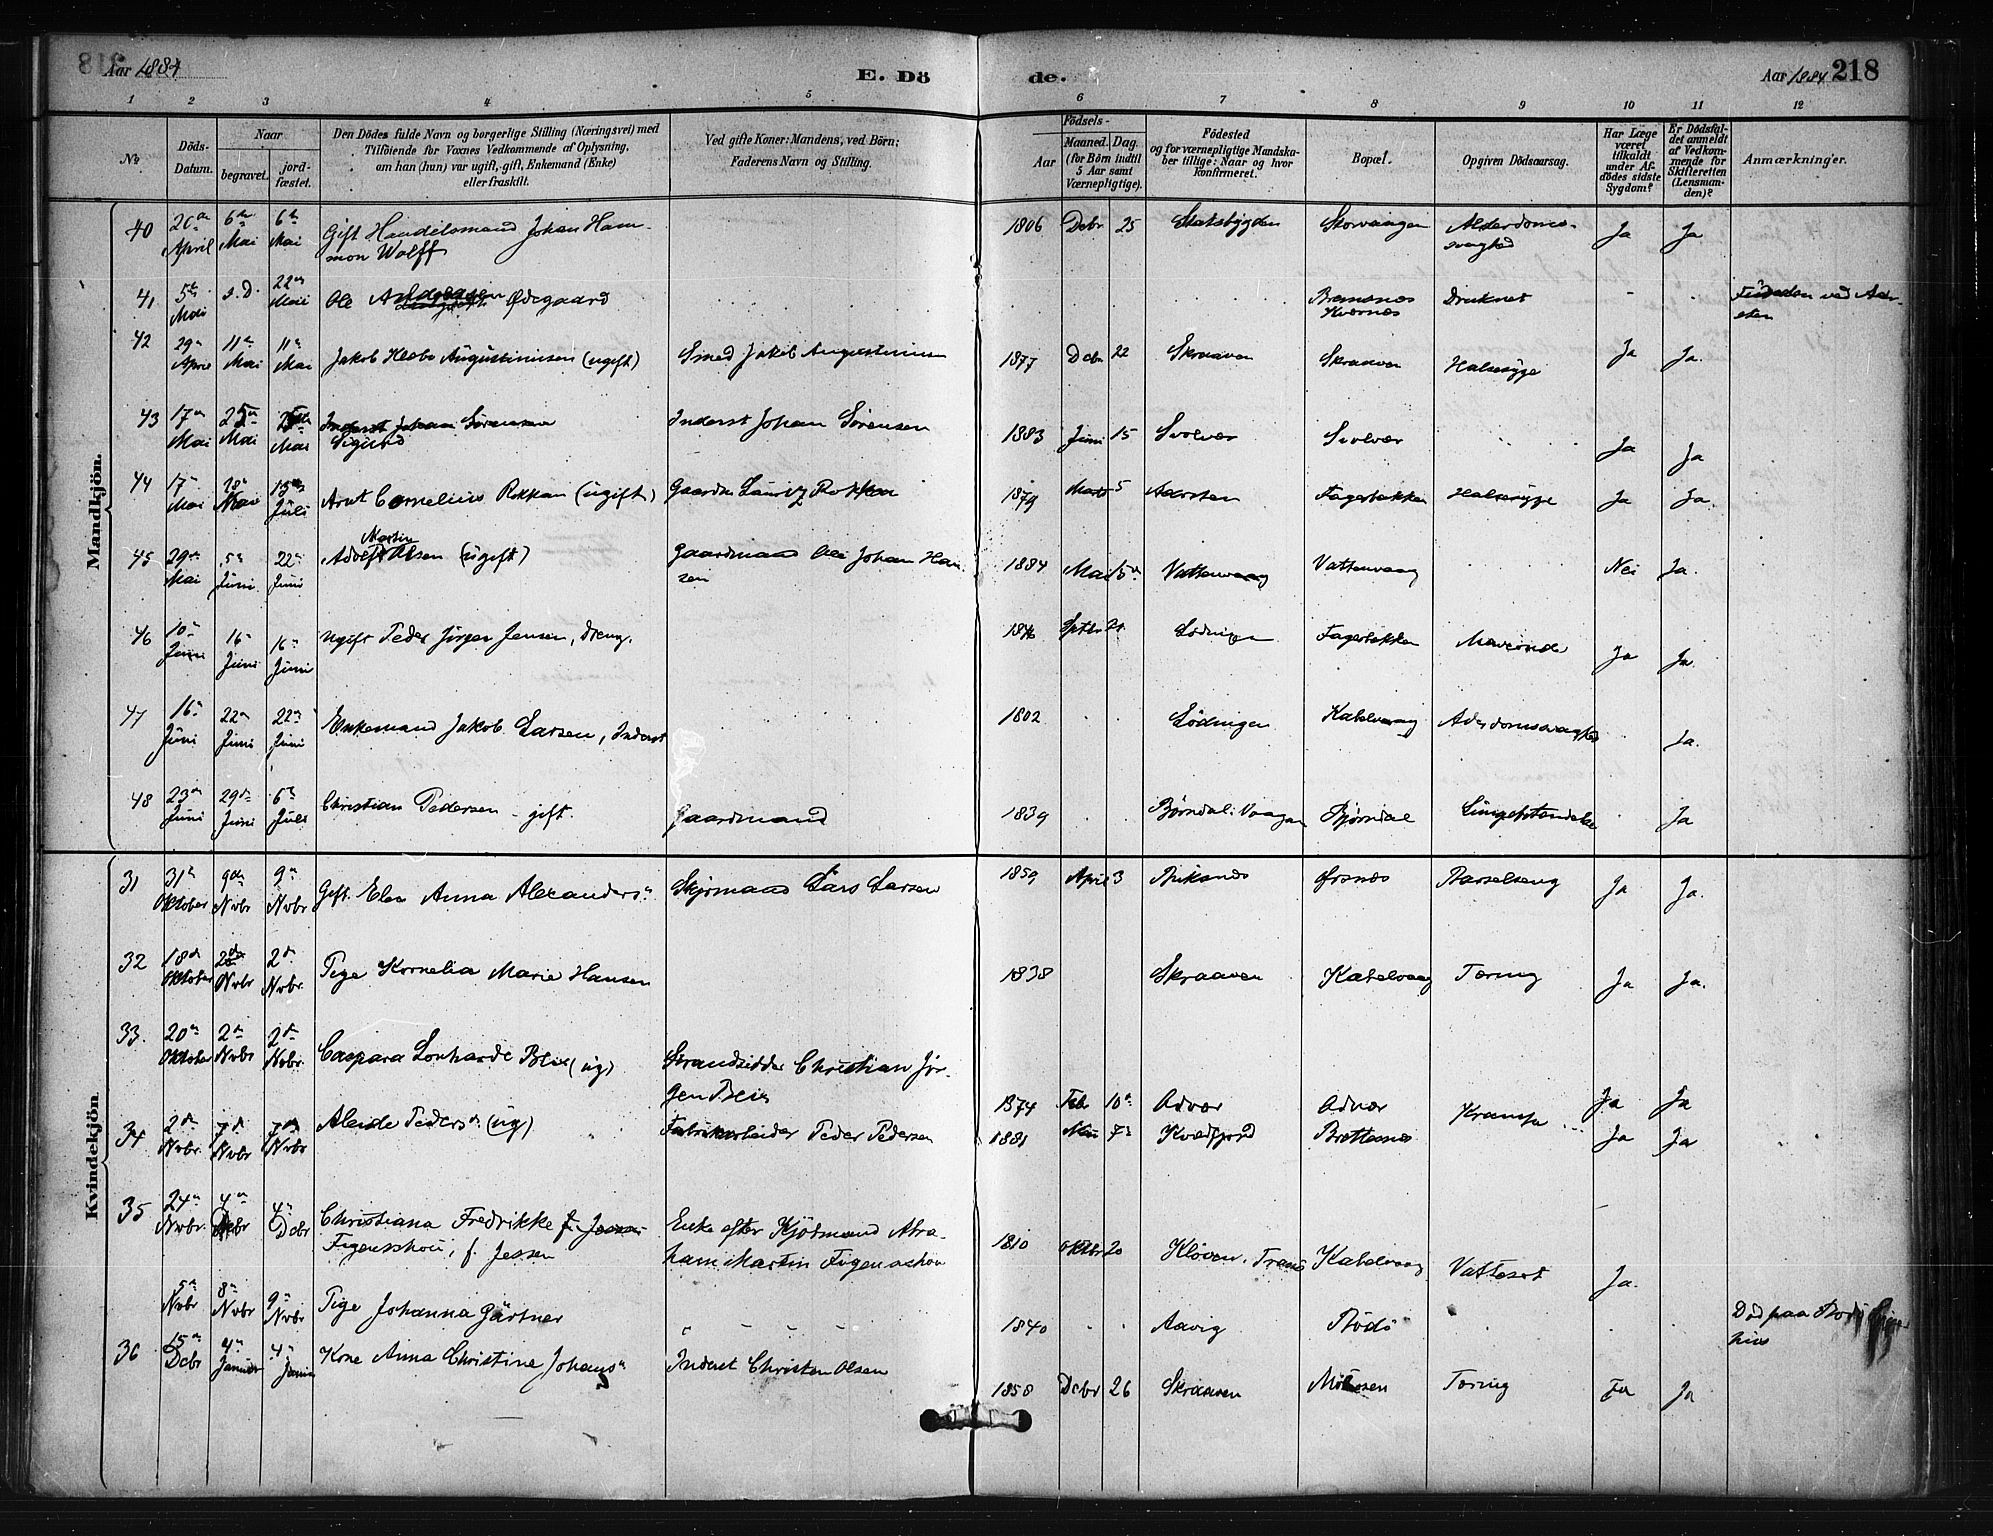 Aar 1884
E. Dö
de.
Aar 1884 218
1 2 3 4 5 6 7 8 9 10 11 12
No
Döds-Datum.
Naar
begravet.
jord-fæstet.
Den Dödes fulde Navn og borgerlige Stilling (Næringsvei) med
Tilföiende for Voxnes Vedkommende af Oplysning,
om han (hun) var ugift, gift, Enkemand (Enke)
eller fraskilt.
Ved gifte Koner: Mandens, ved Börn:
Faderens Navn og Stilling.
Födsels-
Aar
Maaned. Dag.
(for Börn indtil
5 Aar samt
Værnepligtige).
Födested
og for værnepligtige Mandska-
ber tillige: Naar og hvor
konfirmeret.
Bopæl.
Opgiven Dödsaarsag.
Har Læge
været
tilkaldt
under Af-
dödes sidste
Sygdom?
Er Dödsfal-
det anmeldt
af Vedkom-
mende for
Skifteretten
(Lensman-
den)?
Anmærkninger.
Mandkjön.
40 26de April 6te Mai 6te Mai Gift Handelsmand Johan Ham- 1806 Decbr 25 Statsbygden Storvaagen Alderdoms- Ja Ja
mon Wolff svaghed
41 5te Mai s. D. 22de Mai Ole Ødegaard Bremsnes Druknet
Kværnæs
42 29de April 11te Mai 11te Mai Jakob Augustinusen (ugift) Smed Jakob Augustinusen 1877 Dcbr 22 Skraaven Skraaven Halssyge Ja Ja.
43 17de Mai 25de Mai Mai Inderst Johan Sørensen Inderst Johan Sørensen 1883 Juni 15 Svolvær Svolvær Ja Ja
Sigurd
44 17de Mai Mai 15de Juli Arnt Cornelius Rokkan (ugift) Gaardm. Lauritz Rokkan 1879 Marts 5 Fagerbakken Halssyge Ja Ja.
Martin
45 29de Mai 5te Juni 22de Juni Adolf Olsen (ugift) Gaardmand Ole Johan Han- 1884 Mai 15de Vattenvaag Vattenvaag Nei Ja.
sen
46 10de Juni 16de Juni 16de Juni Ugift Peder Jørgen Jensen, dreng. Sptbr Lødingen Fagerbakken Maveonde Ja Ja.
47 16de Juni 22de Juni 22de Juni Enkemand Jakob Larsen, Inderst 1802 Lødingen Kabelvaag Alderdomssvaghed Ja.
48 23de Juni 29de Juni 6te Juli Christian Pedersen - gift. Gaardmand 1839 Bjørndal i Vaagan Bjørndal Lungebetændelse Ja
Kvindekjön.
31 31te Oktober 9de Nvbr 9de Nvbr Gift. Elen Anna Alexandersdr Larsen 1859 April 3 Ørsnes Barselseng Ja Ja.
32 18de Oktober 2de Nvbr 2de Nvbr Pige Kornelia Marie Hansen 1838 Skraaven Kabelvaag Tæring Ja Ja.
33. 20de Oktober 2de Nvbr 2de Nvbr. Caspara Lonharde Breis (ug) Strandsidder Christian Jør-
gen Breis 1874 Feb 10de Ja Ja
34 2de Nvbr 7de Nvbr 7de Nvbr Aleide Pedersdr (ug) Fabrikarbeider Peder Pedersen 1881 Mai 7de Kvædfjord Brettesnes Krampe Ja Ja
35 24de Nvbr. 4de Dcbr 4de Dcbr Christiana Fredrikke f. Jessen Enke efter Kjøbmand Abra-
Figenschou, f. Jessen ham Martin Figenschou 1810 Oktbr 20 Kløven, Trans Kabelvaag Vattersot Ja.
5te Nvbr 8de Nvbr 9de Nvbr Pige Johanna Gärtner 1840 Aavig Bodö Död paa Bodö Syge-
hus
36 15de Dcbr 4de Januar 4de Janu Kone Anna Christine Johansdr Inderst Christen Olsen 1858 Dcbr 26 Skraaven Molosen Tæring Ja Ja